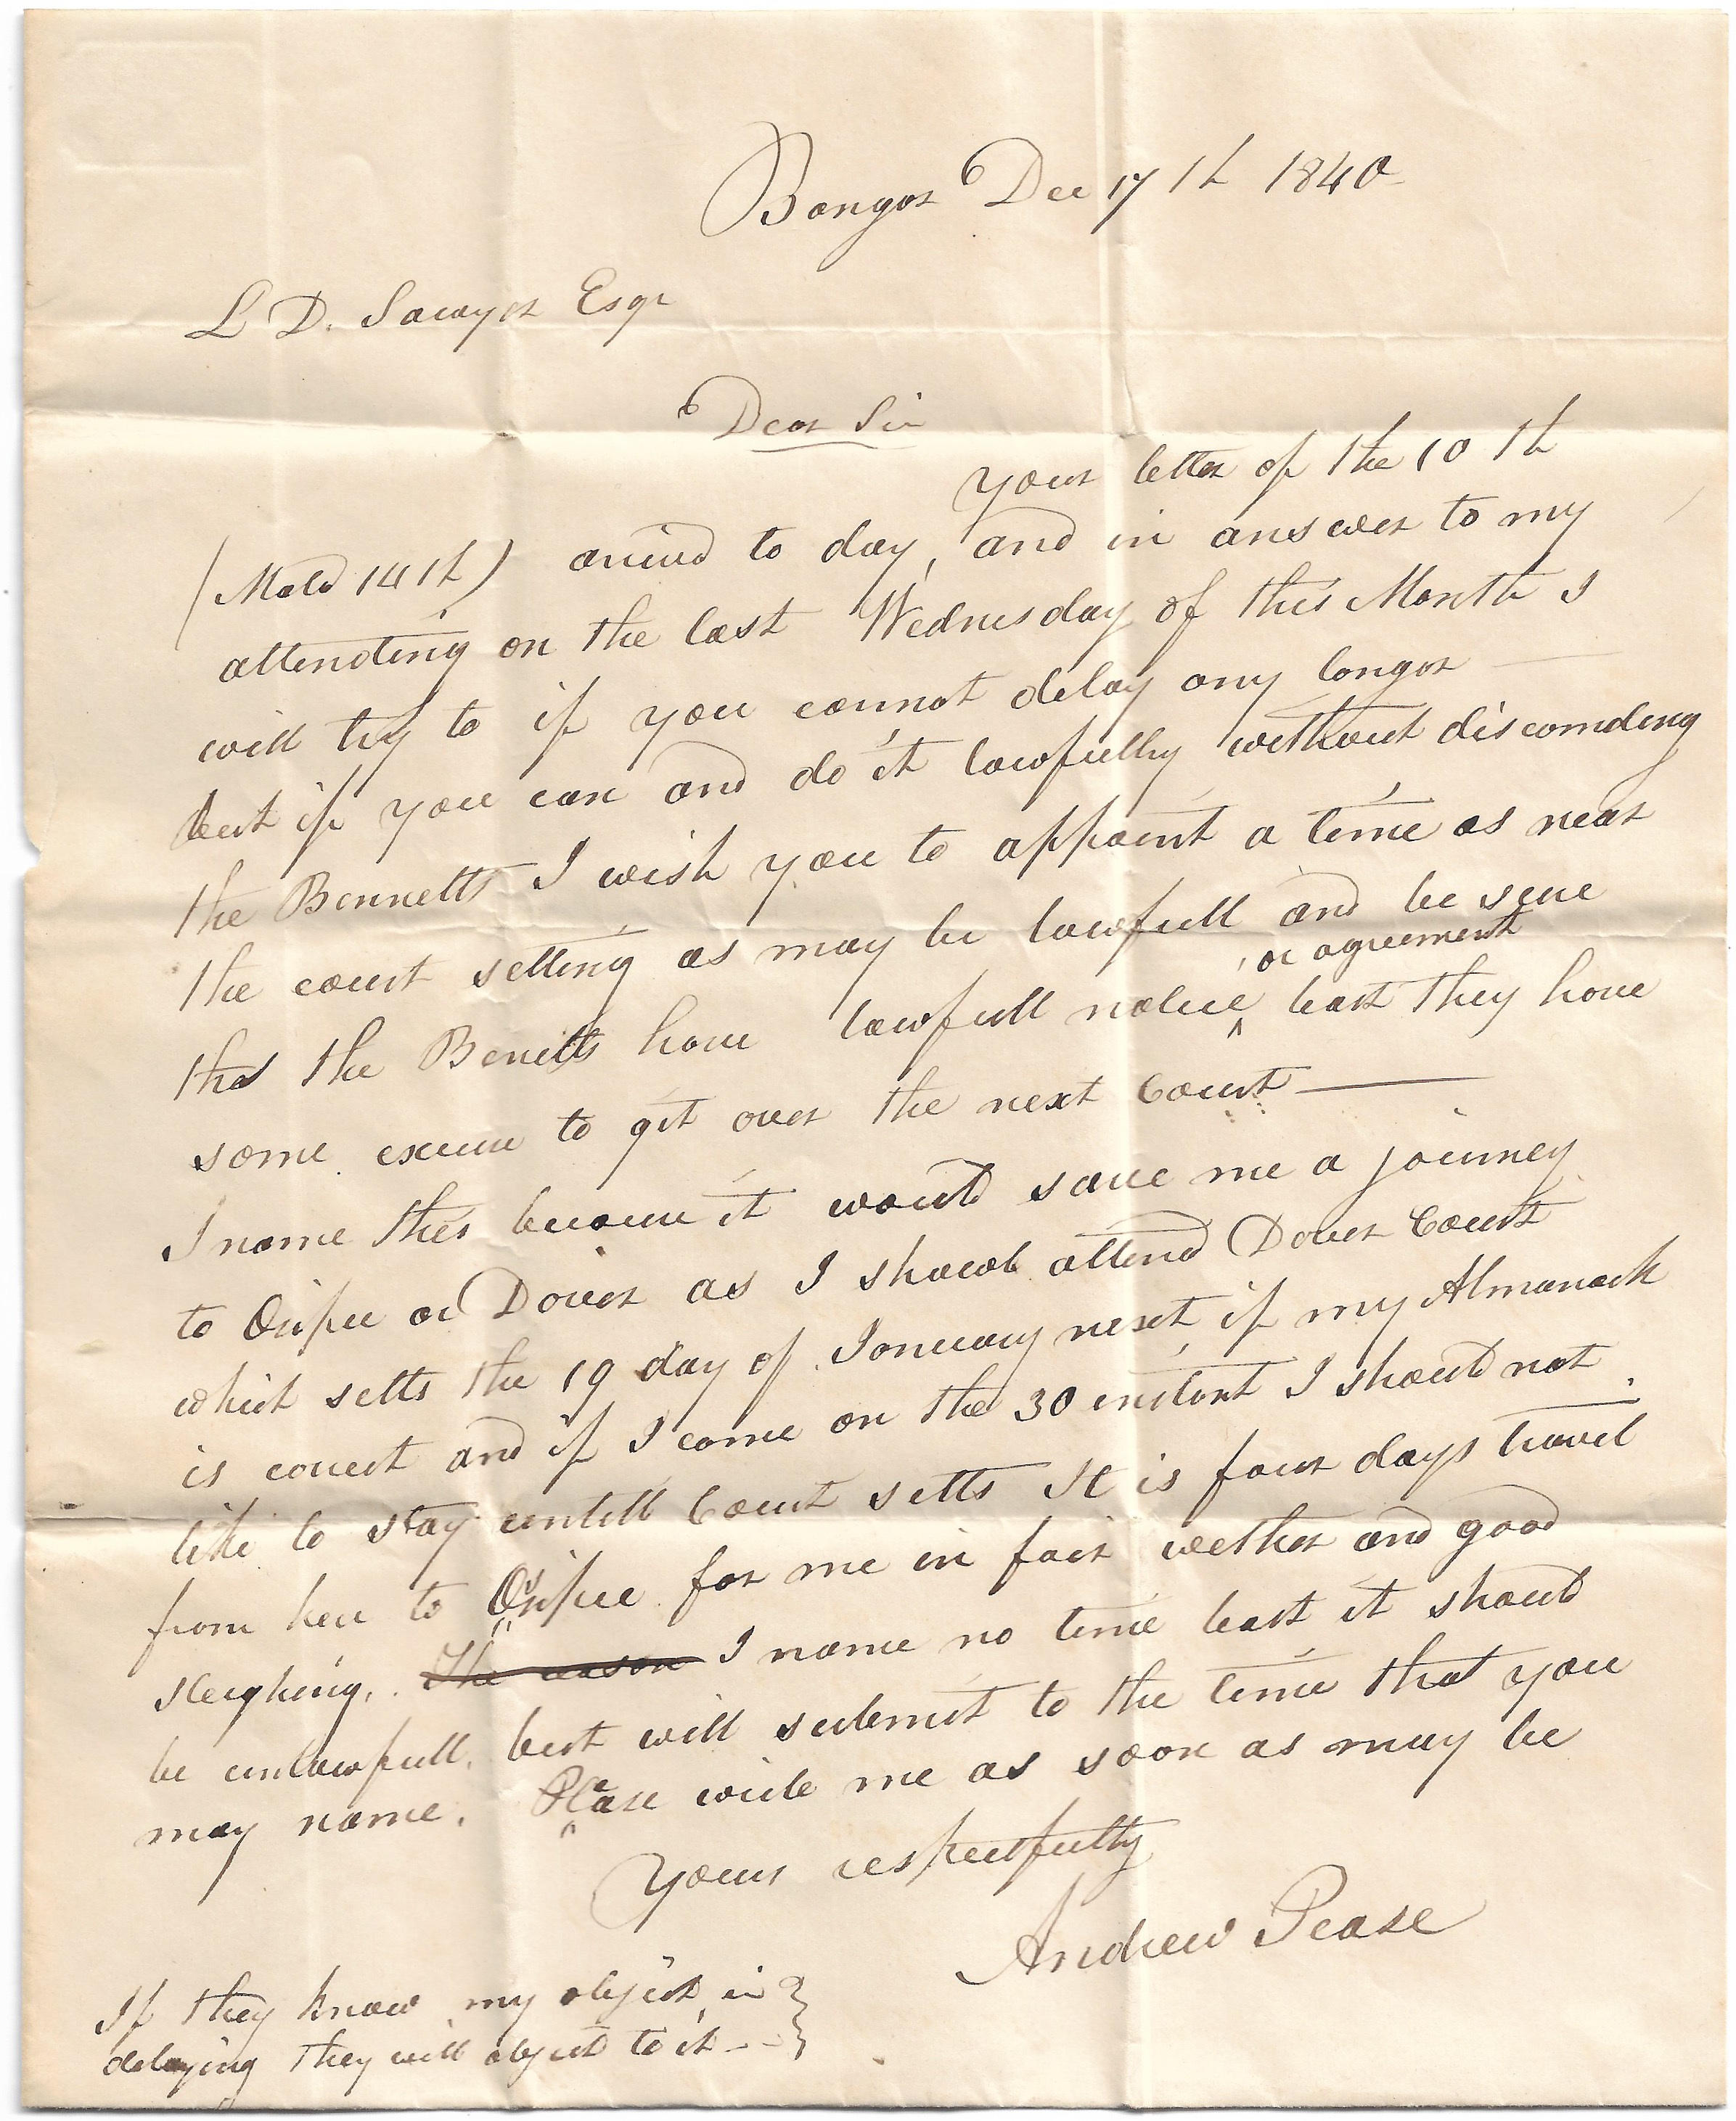 Bangor Dec 17 th 1840
L D. Sawyer Esqr
Dear Sir
your letter of the 10 th
(Mald 14 th) arived to day, and in answer to my
attending on the last Wednesday of this Month I
will try to if you cannot delay any longer
but if you can and do it lawfully without discomding
the Bennetts I wish you to appoint a time as near
the court setting as may be lawfull and be sure
or agreement
that the Benetts have lawfull notice ^ least they have
some excuse to git over the next Court
I name this because it would save me a journey
to Osipee or Dover as I should attend Dover Court
which setts the 19 day of January next, if my Almanack
is correct and if I come on the 30 instant I should not
like to stay untill Court setts It is four days travel
from here to Osipee for me in fair wether and good
sleighing. The reason I name no time least it should
be unlawfull, but will submit to the time that you
may name. Please write me as soon as may be
yours respectfully
Andrew Pease
If they know my object in
delaying they will object to it --